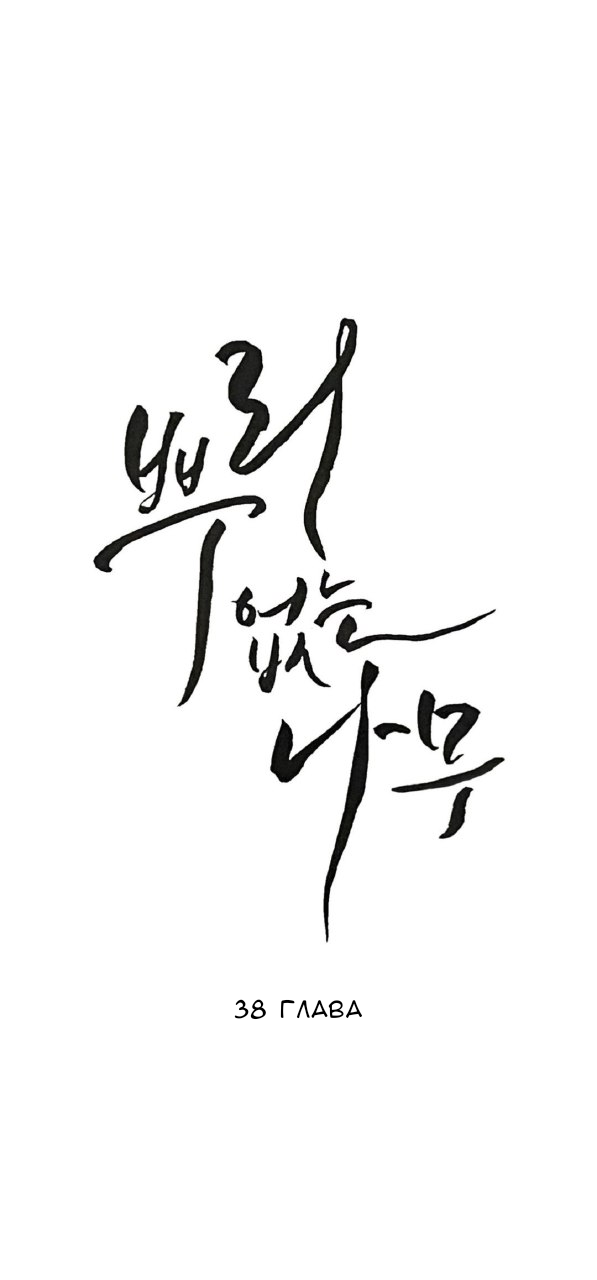 뿌리
없는
나무
38 ГЛАВА